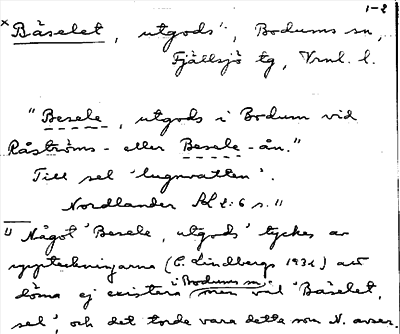 1-2
× Båselet, utgods¹⁾, Bodums sn,
Fjällsjö tg, Vrnl. l.
"Besele, utgods i Bodum vid
Råströms- eller Besele-ån."
Till sel 'lugnvatten'.
Nordlander 2:6 s. 11
1) Något 'Besele, utgods' tyckes av
uppteckningarna (C. Lindbergs 1932) att
döma ej existera i Bodums sn, men väl 'Båselet,
sel', och det torde vara detta som N. avser.